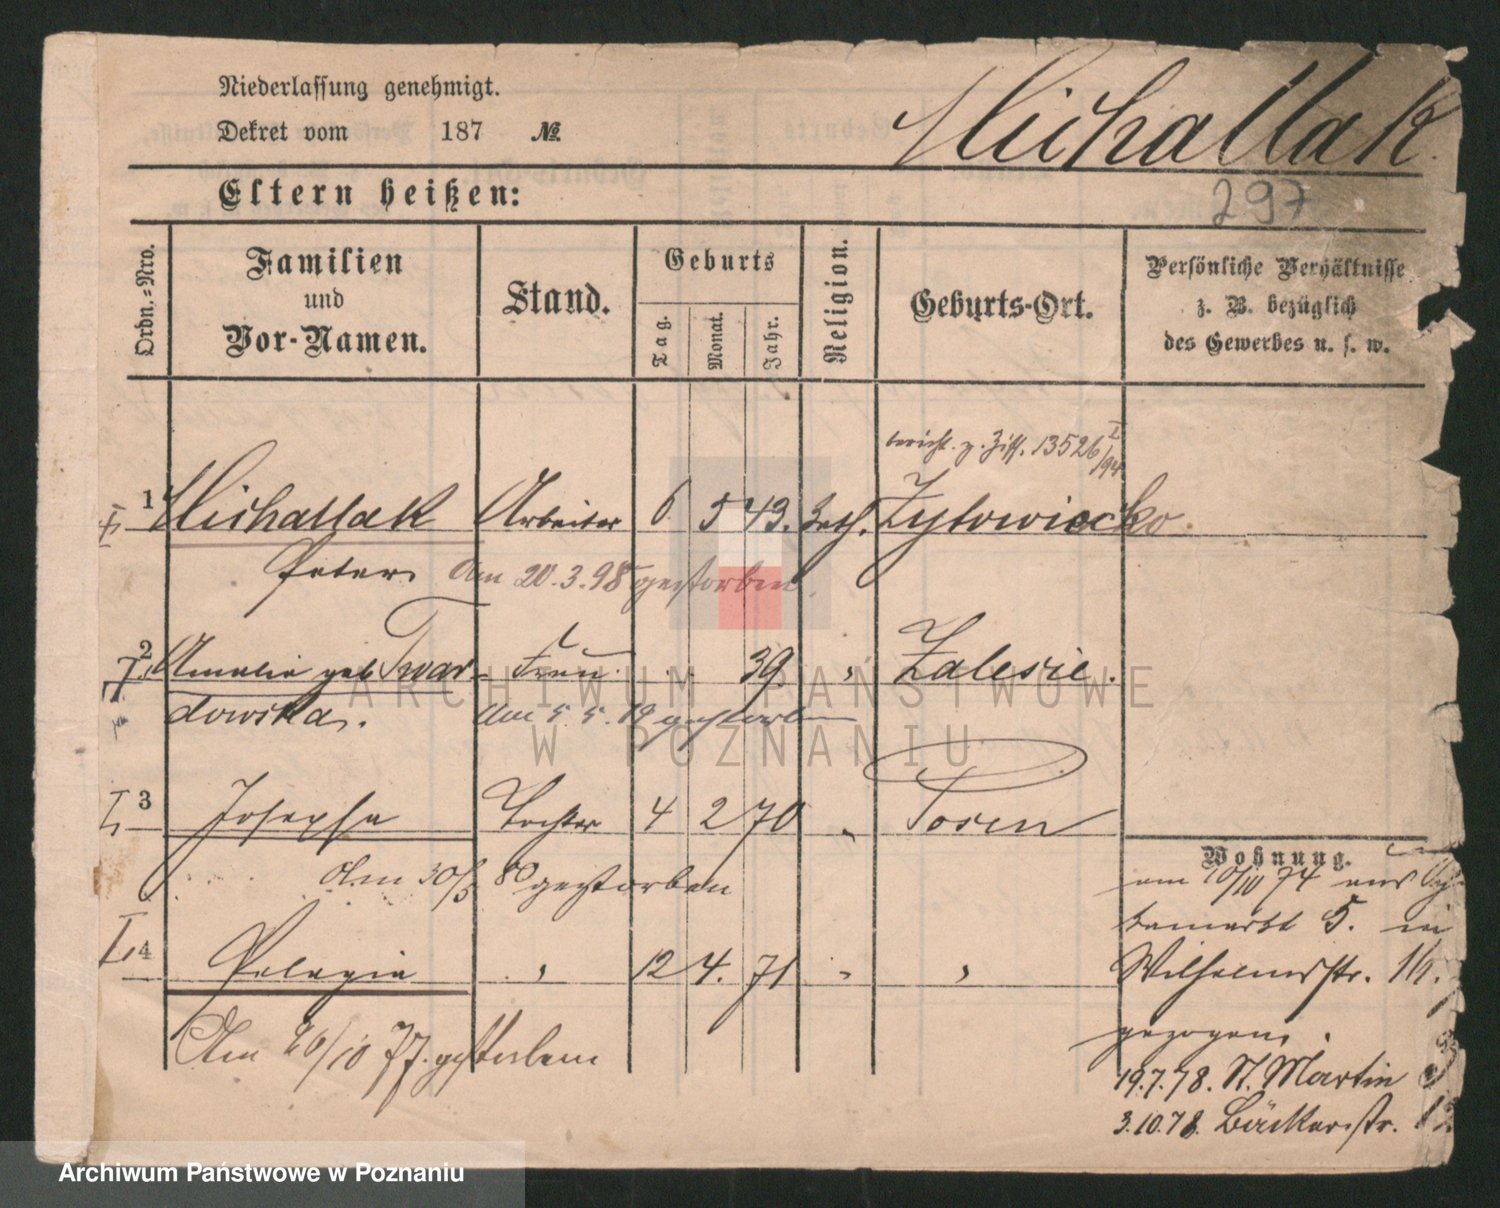 Niederlassung genehmigt.
Dekret vom 187 №
Michallak
297
Eltern heißen:
Ordn.-Nro.
Familien und Vor-Namen.
Stand.
Geburts
Tag.
Monat.
Jahr.
Religion.
Geburts-Ort.
Persönliche Verhältnisse
z. B. bezüglich
des Gewerbes u. s. w.
bericht. z. Ziff. 13526 I/94
1 Michallak Arbeiter 6 5 43. kath. Zytowiecko
Peter am 20.3.98 gestorben.
2 Amalie geb. Twar- Frau 39. " Zalesie.
dowska. Am 5.5.19 gestorben
3 Josepha Tochter 4 2 70 " Posen
Am 30/5 80 gestorben
Wohnung.
am 10/10 74 aus
5. in
4 Pelagia " 12 4. 71 " "
Wilhelmstr. 16.
gezogen.
Am 26/10 77. gestorben
19.7.78. St. Martin
3.10.78. Bäckerstr.
ARCHIWUM PAŃSTWOWE
W POZNANIU
Archiwum Państwowe w Poznaniu